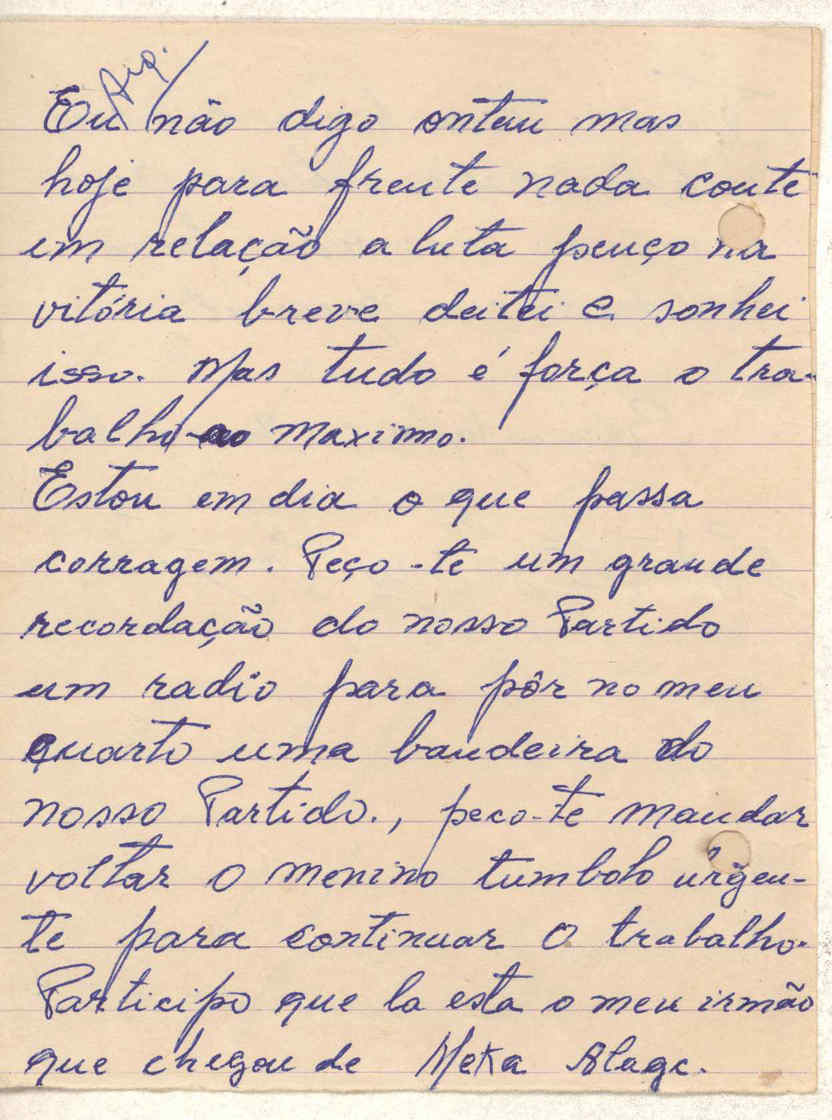 Arq.
Eu não digo ontem mas
hoje para frente nada conte
em relação a luta penço na
vitória breve deitei e sonhei
isso. Mas tudo é força o tra-
balho ao maximo.
Estou em dia o que passa
corragem. Peço-te um grande
recordação do nosso Partido
um radio para pôr no meu
quarto uma bandeira do
nosso Partido., peco-te mandar
voltar o menino tumbolo urgen-
te para continuar o trabalho.
Participo que la esta o meu irmão
que chegou de Meka Alage.